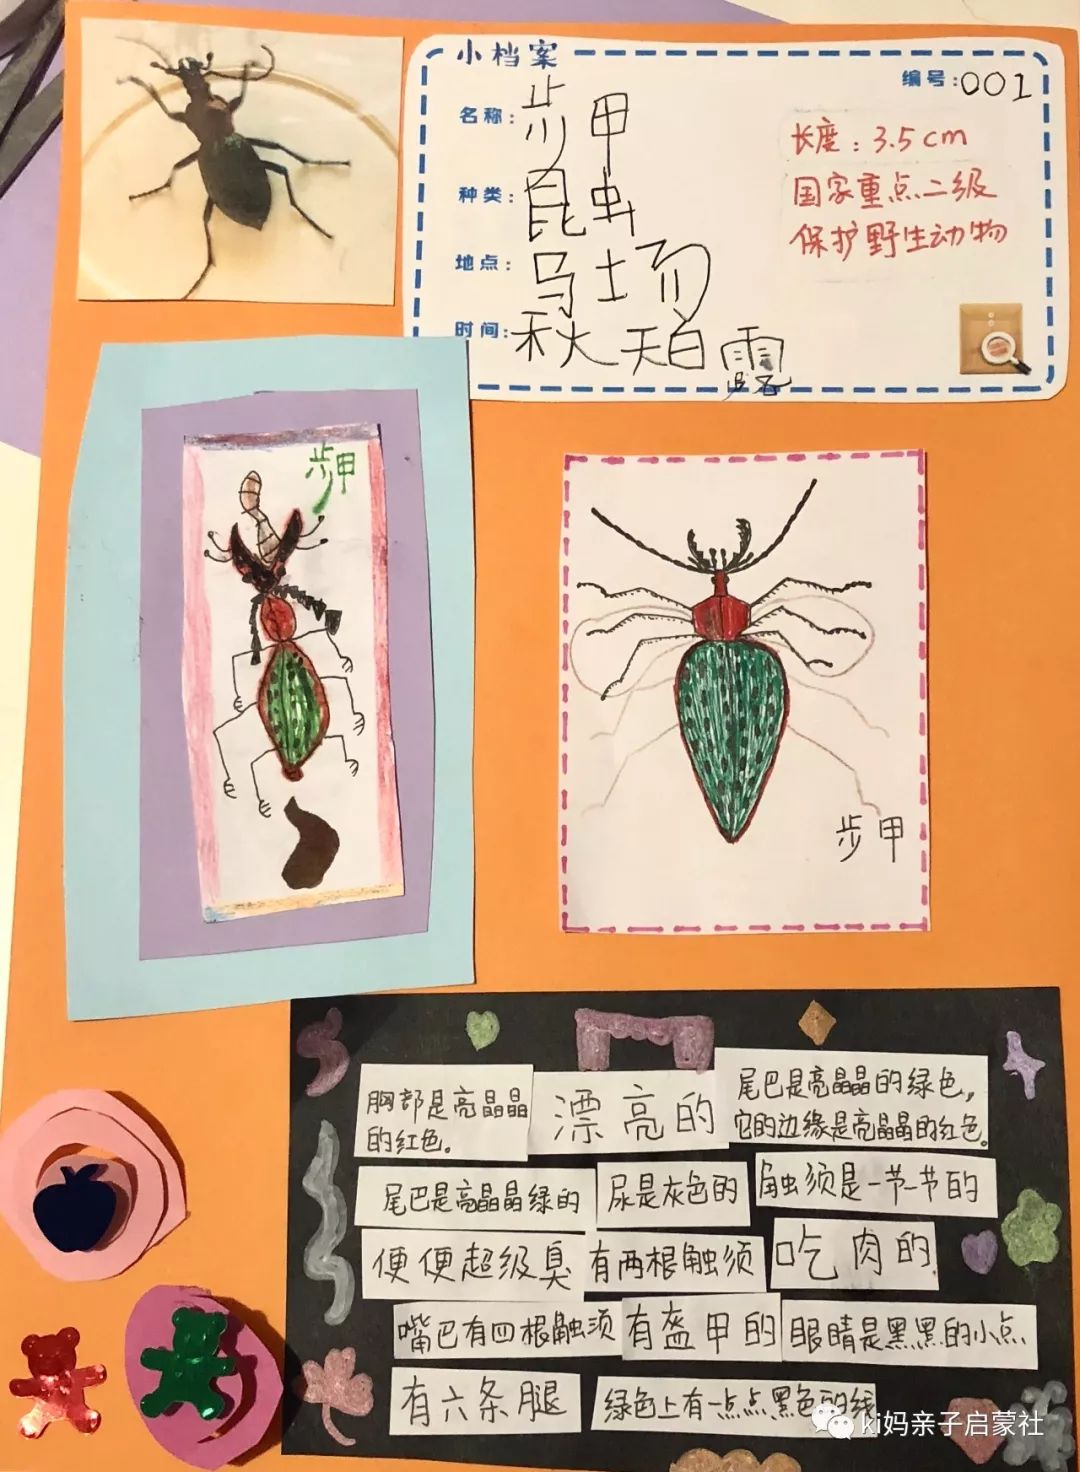 小档案
编号:001
名称:步甲
种类:昆虫
地点:马场
时间:秋天白露
长度:3.5cm
国家重点二级
保护野生动物
步甲
步甲
胸部是亮晶晶
的红色。
漂亮的
尾巴是亮晶晶的绿色,
它的边缘是亮晶晶的红色。
尾巴是亮晶晶绿的
尿是灰色的
触须是一节一节的
便便超级臭
有两根触须
吃肉的
嘴巴有四根触须
有盔甲的
眼睛是黑黑的小点
有六条腿
绿色上有一点点黑色的线
ki妈亲子启蒙社